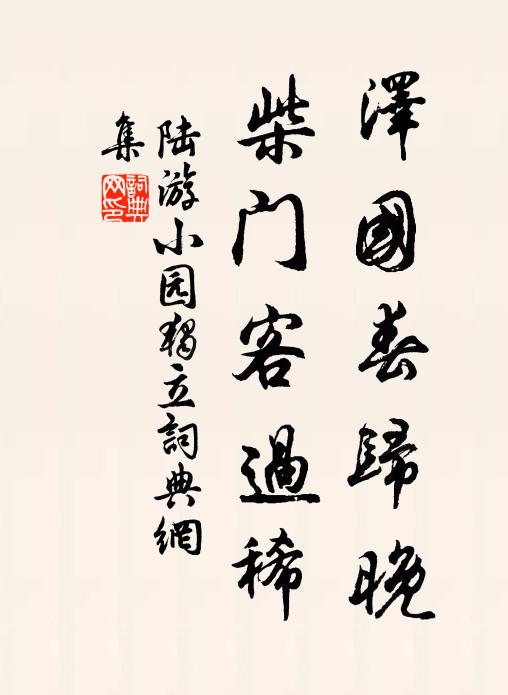 澤國春歸晚
柴門客過稀
陸游小园獨立詞典網
集
詞典網印